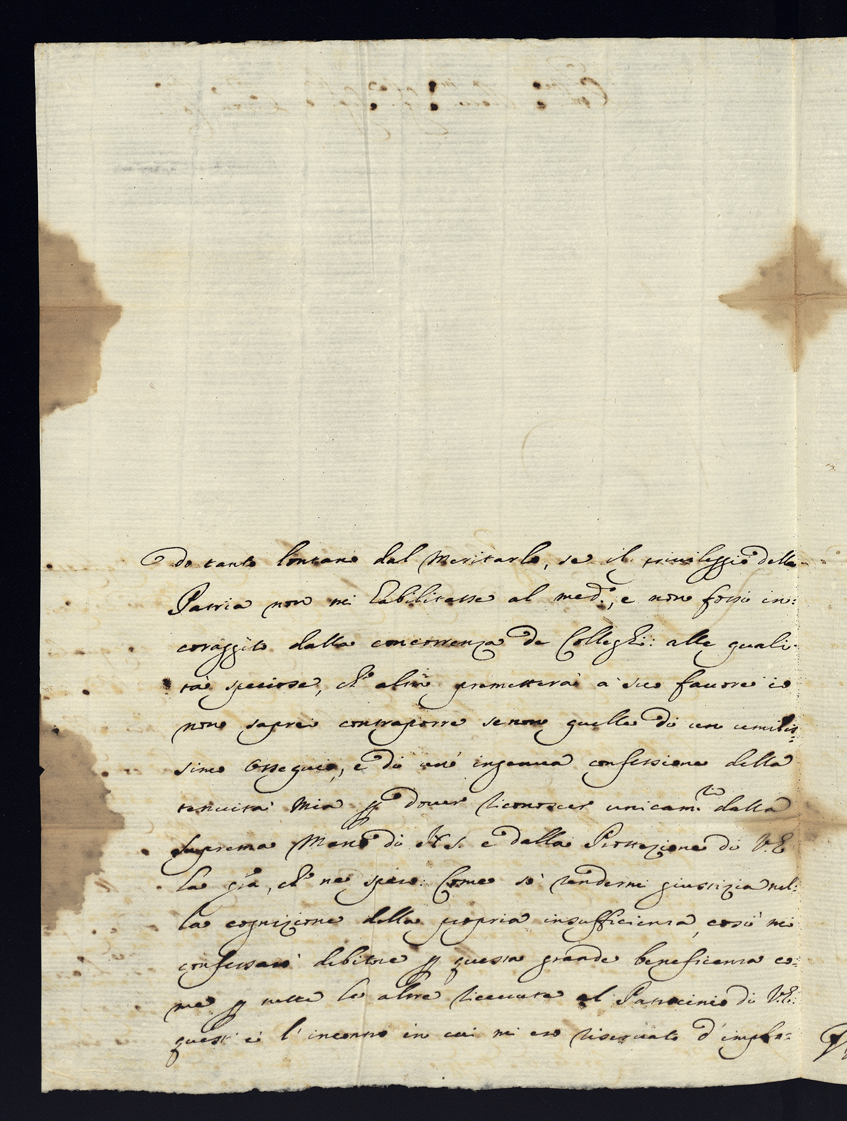 do tanto lontano dal meritarlo, se il privileggio della
Patria non mi habilitasse al med:º, e non fossi in:
coraggito dalla concorrenza de Colleghi: alle quali:
tà speciose, ch' altri premetterà a suo favore io
non saprei contraporre senon quelle di un umilis:
simo ossequio, e di un' ingenua confessione della
tenuità mia p dover riconoscer unicam.te dalla
suprema Mano di N. S. e dalla Protezione di V.E
la gīa, ch' ne spero: Come sò rendermi giustizia nel:
la cognizione della propria insufficienza, così mi
confessarò debitore p questa grande beneficenza co:
me p tutte le altre ricevute al Patrocinio di V.E:
quest' è l' incontro in cui mi ero riservato d' implo: